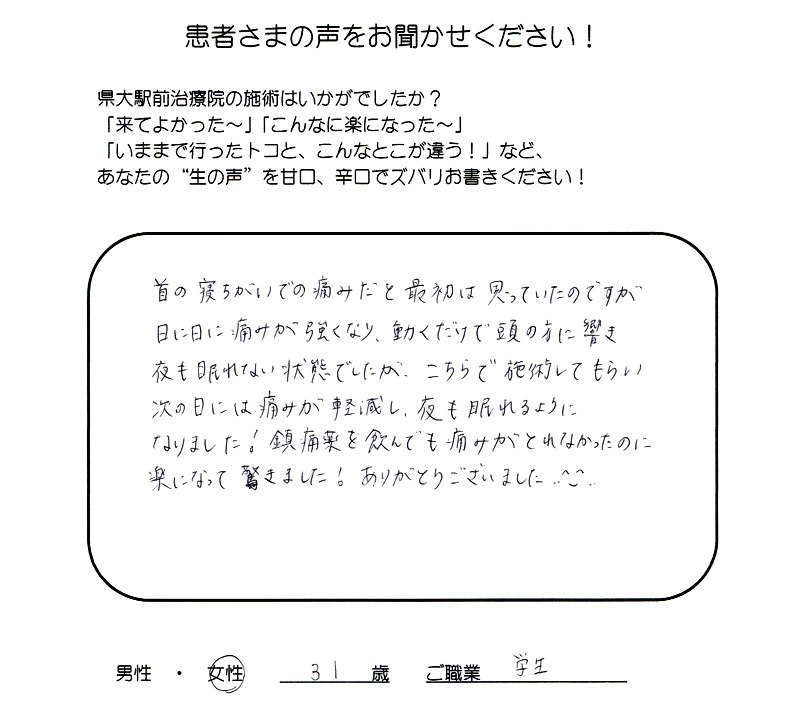 患者さまの声をお聞かせください！
県大駅前治療院の施術はいかがでしたか？
「来てよかった～」「こんなに楽になった～」
「いままで行ったトコと、こんなとこが違う！」など、
あなたの“生の声”を甘口、辛口でズバリお書きください！
首の寝ちがいでの痛みだと最初は思っていたのですが
日に日に痛みが強くなり、動くだけで頭の方に響き
夜も眠れない状態でしたが、こちらで施術してもらい
次の日には痛みが軽減し、夜も眠れるように
なりました！鎮痛薬を飲んでも痛みがとれなかったのに
楽になって驚きました！ありがとうございました..^^..
男性 ・ 女性 31 歳 ご職業 学生